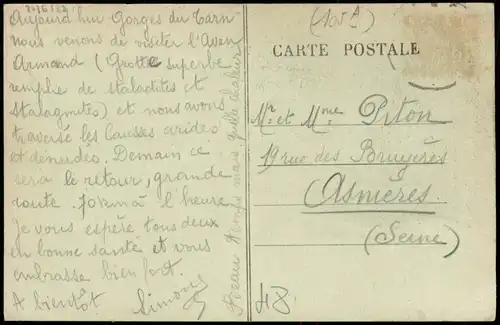 Aujourd'hui Gorges du Tarn
nous venons de visiter l'Aven
Armand (Grotte superbe
remplie de stalactites et
stalagmites) et nous avons
traversé les Causses arides
et dénudés. Demain ce
sera le retour, grande
route. à l'heure
Je vous espère tous deux
en bonne santé et vous
embrasse bien fort.
A bientôt Simone
Beau temps mais quelle chaleur
(105A)
CARTE POSTALE
Mr et Mme Piton
19 rue des Bruyères
Asnières
(Seine)
48